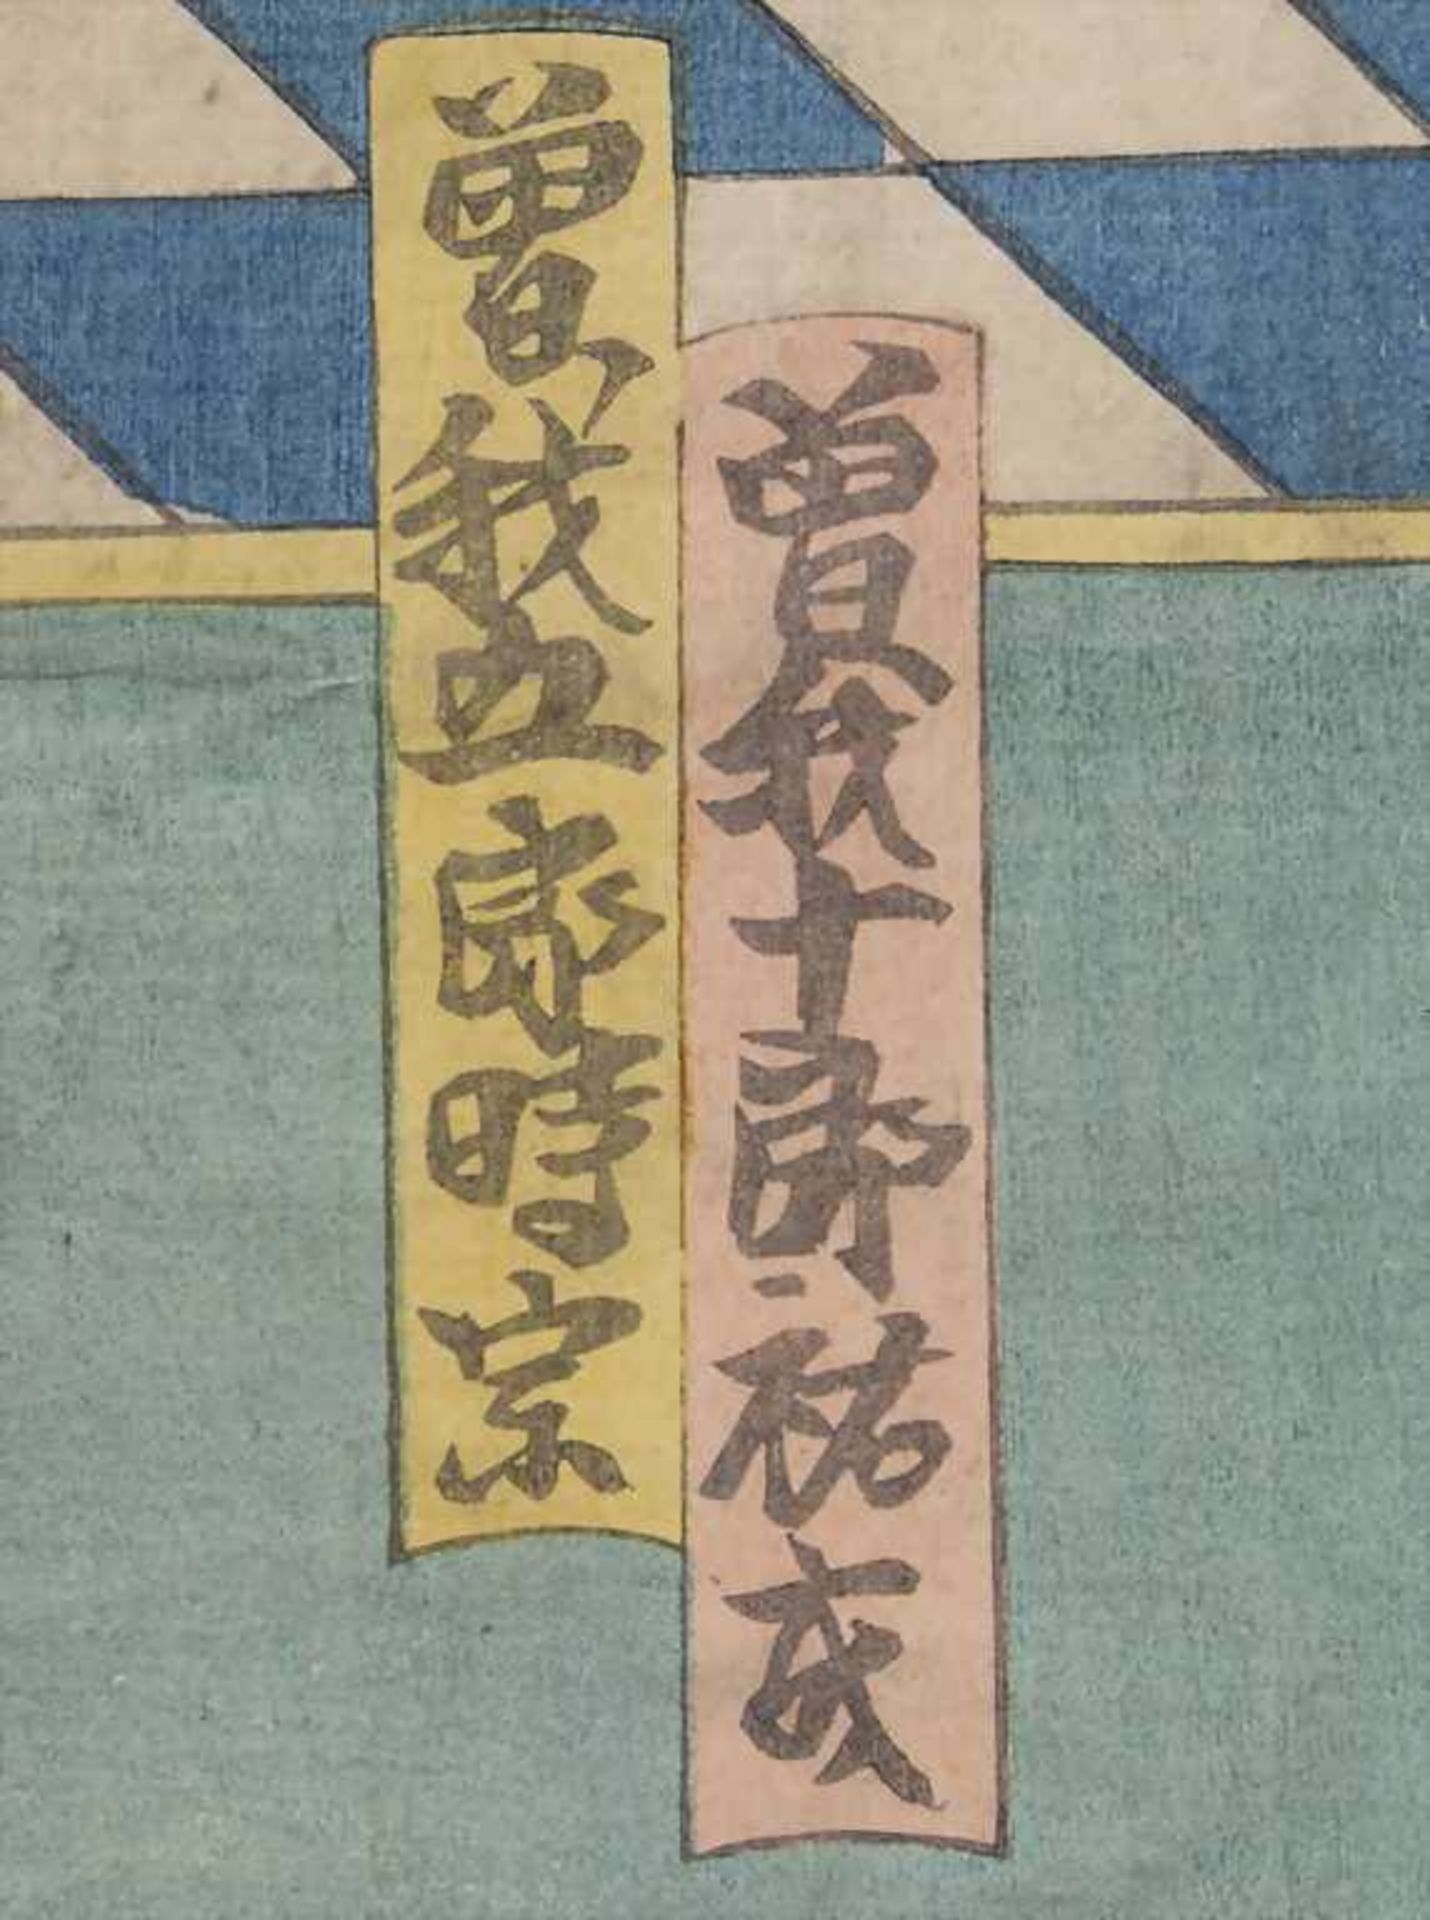 曽我十郎祐成
曽我五郎時宗